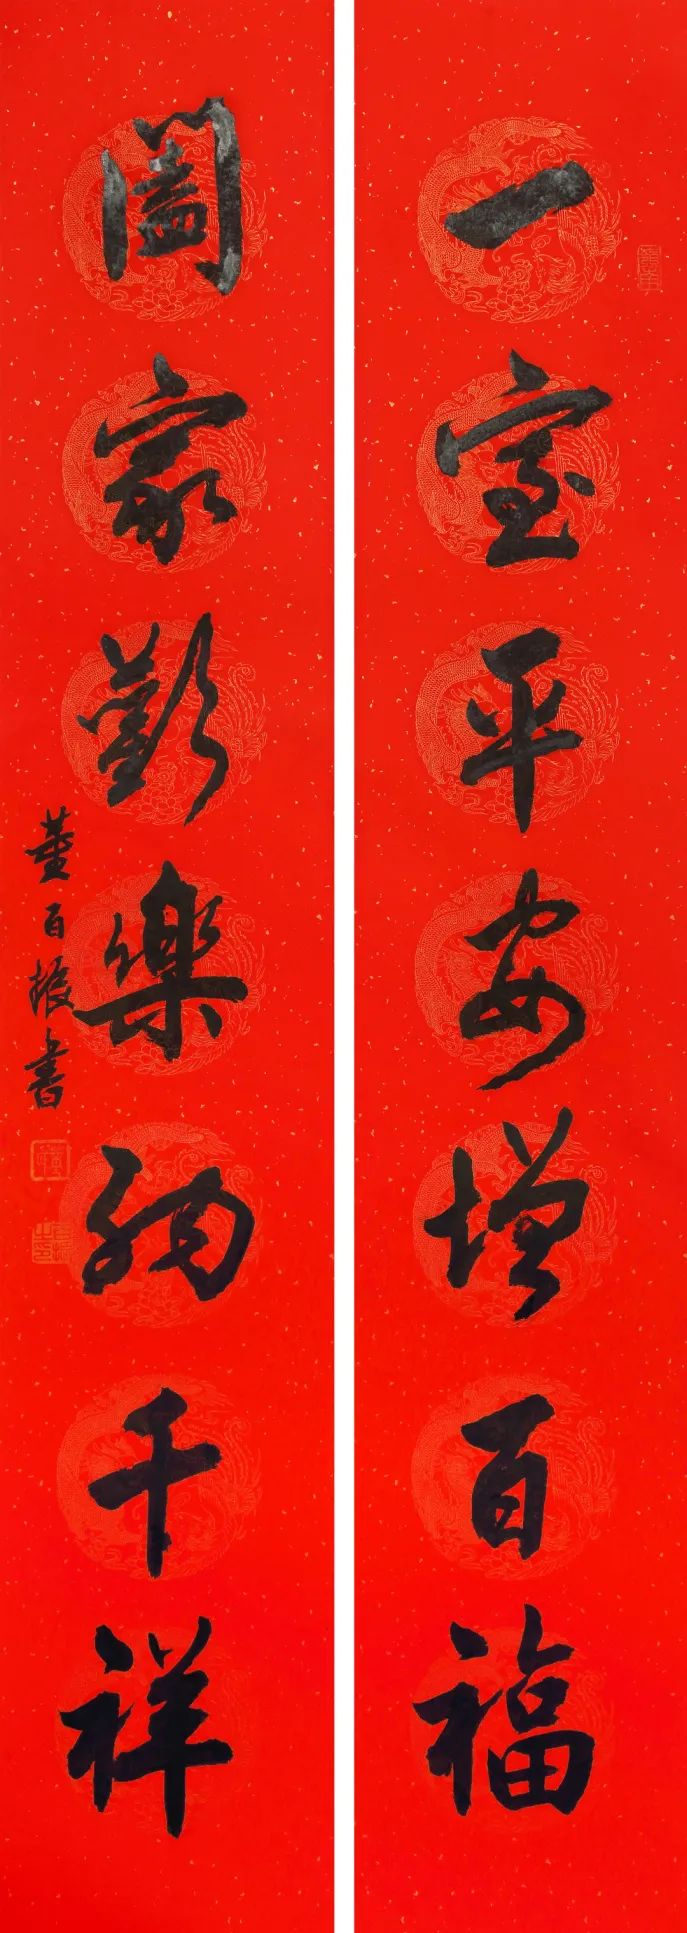 一室平安增百福
闔家歡樂納千祥
董百振書